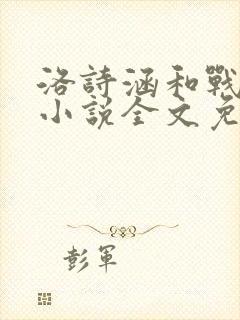 洛詩涵和戰
小說全文免
彭軍